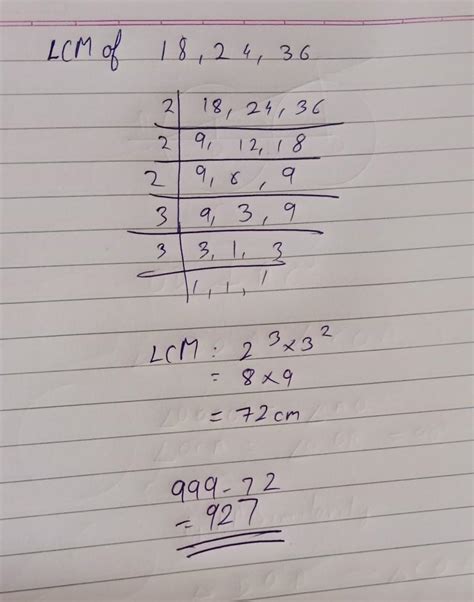 LCM of 18, 24, 36
2 | 18, 24, 36
2 | 9, 12, 18
2 | 9, 6, 9
3 | 9, 3, 9
3 | 3, 1, 3
1, 1, 1
LCM : 2³ × 3²
= 8 × 9
= 72 cm
999 - 72
= 927